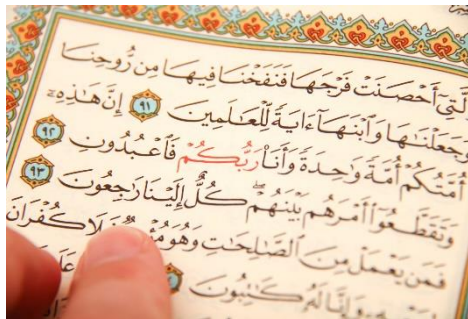 لَّتِىٓ أَحْصَنَتْ فَرْجَهَا فَنَفَخْنَا فِيهَا مِن رُّوحِنَا
وَجَعَلْنَٰهَا وَٱبْنَهَآ ءَايَةً لِّلْعَٰلَمِينَ ٩١ إِنَّ هَٰذِهِۦٓ
أُمَّتُكُمْ أُمَّةً وَٰحِدَةً وَأَنَا۠ رَبُّكُمْ فَٱعْبُدُونِ ٩٢
وَتَقَطَّعُوٓا۟ أَمْرَهُم بَيْنَهُمْ ۖ كُلٌّ إِلَيْنَا رَٰجِعُونَ ٩٣
فَمَن يَعْمَلْ مِنَ ٱلصَّٰلِحَٰتِ وَهُوَ فَلَا كُفْرَانَ
وَإِنَّا لَهُۥ كَٰتِبُونَ